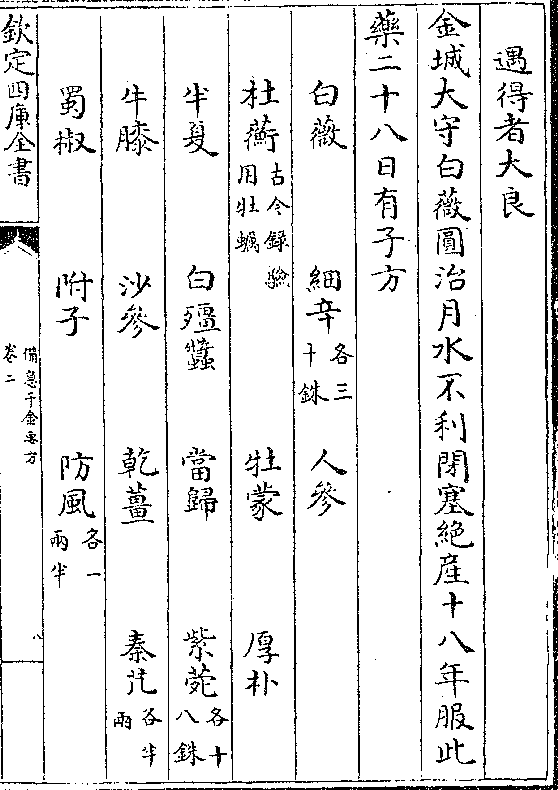 遇得者大良
金城大守白薇圓治月水不利閉塞絶産十八年服此
藥二十八日有子方
白薇 細辛各三十銖 人參
杜蘅古今録驗用牡蠣 牡蒙 厚朴
半夏 白殭蠶 當歸 紫菀各十八銖
牛膝 沙參 乾薑 秦艽各半兩
蜀椒 附子 防風各一兩半
欽定四庫全書
備急千金要方
卷二